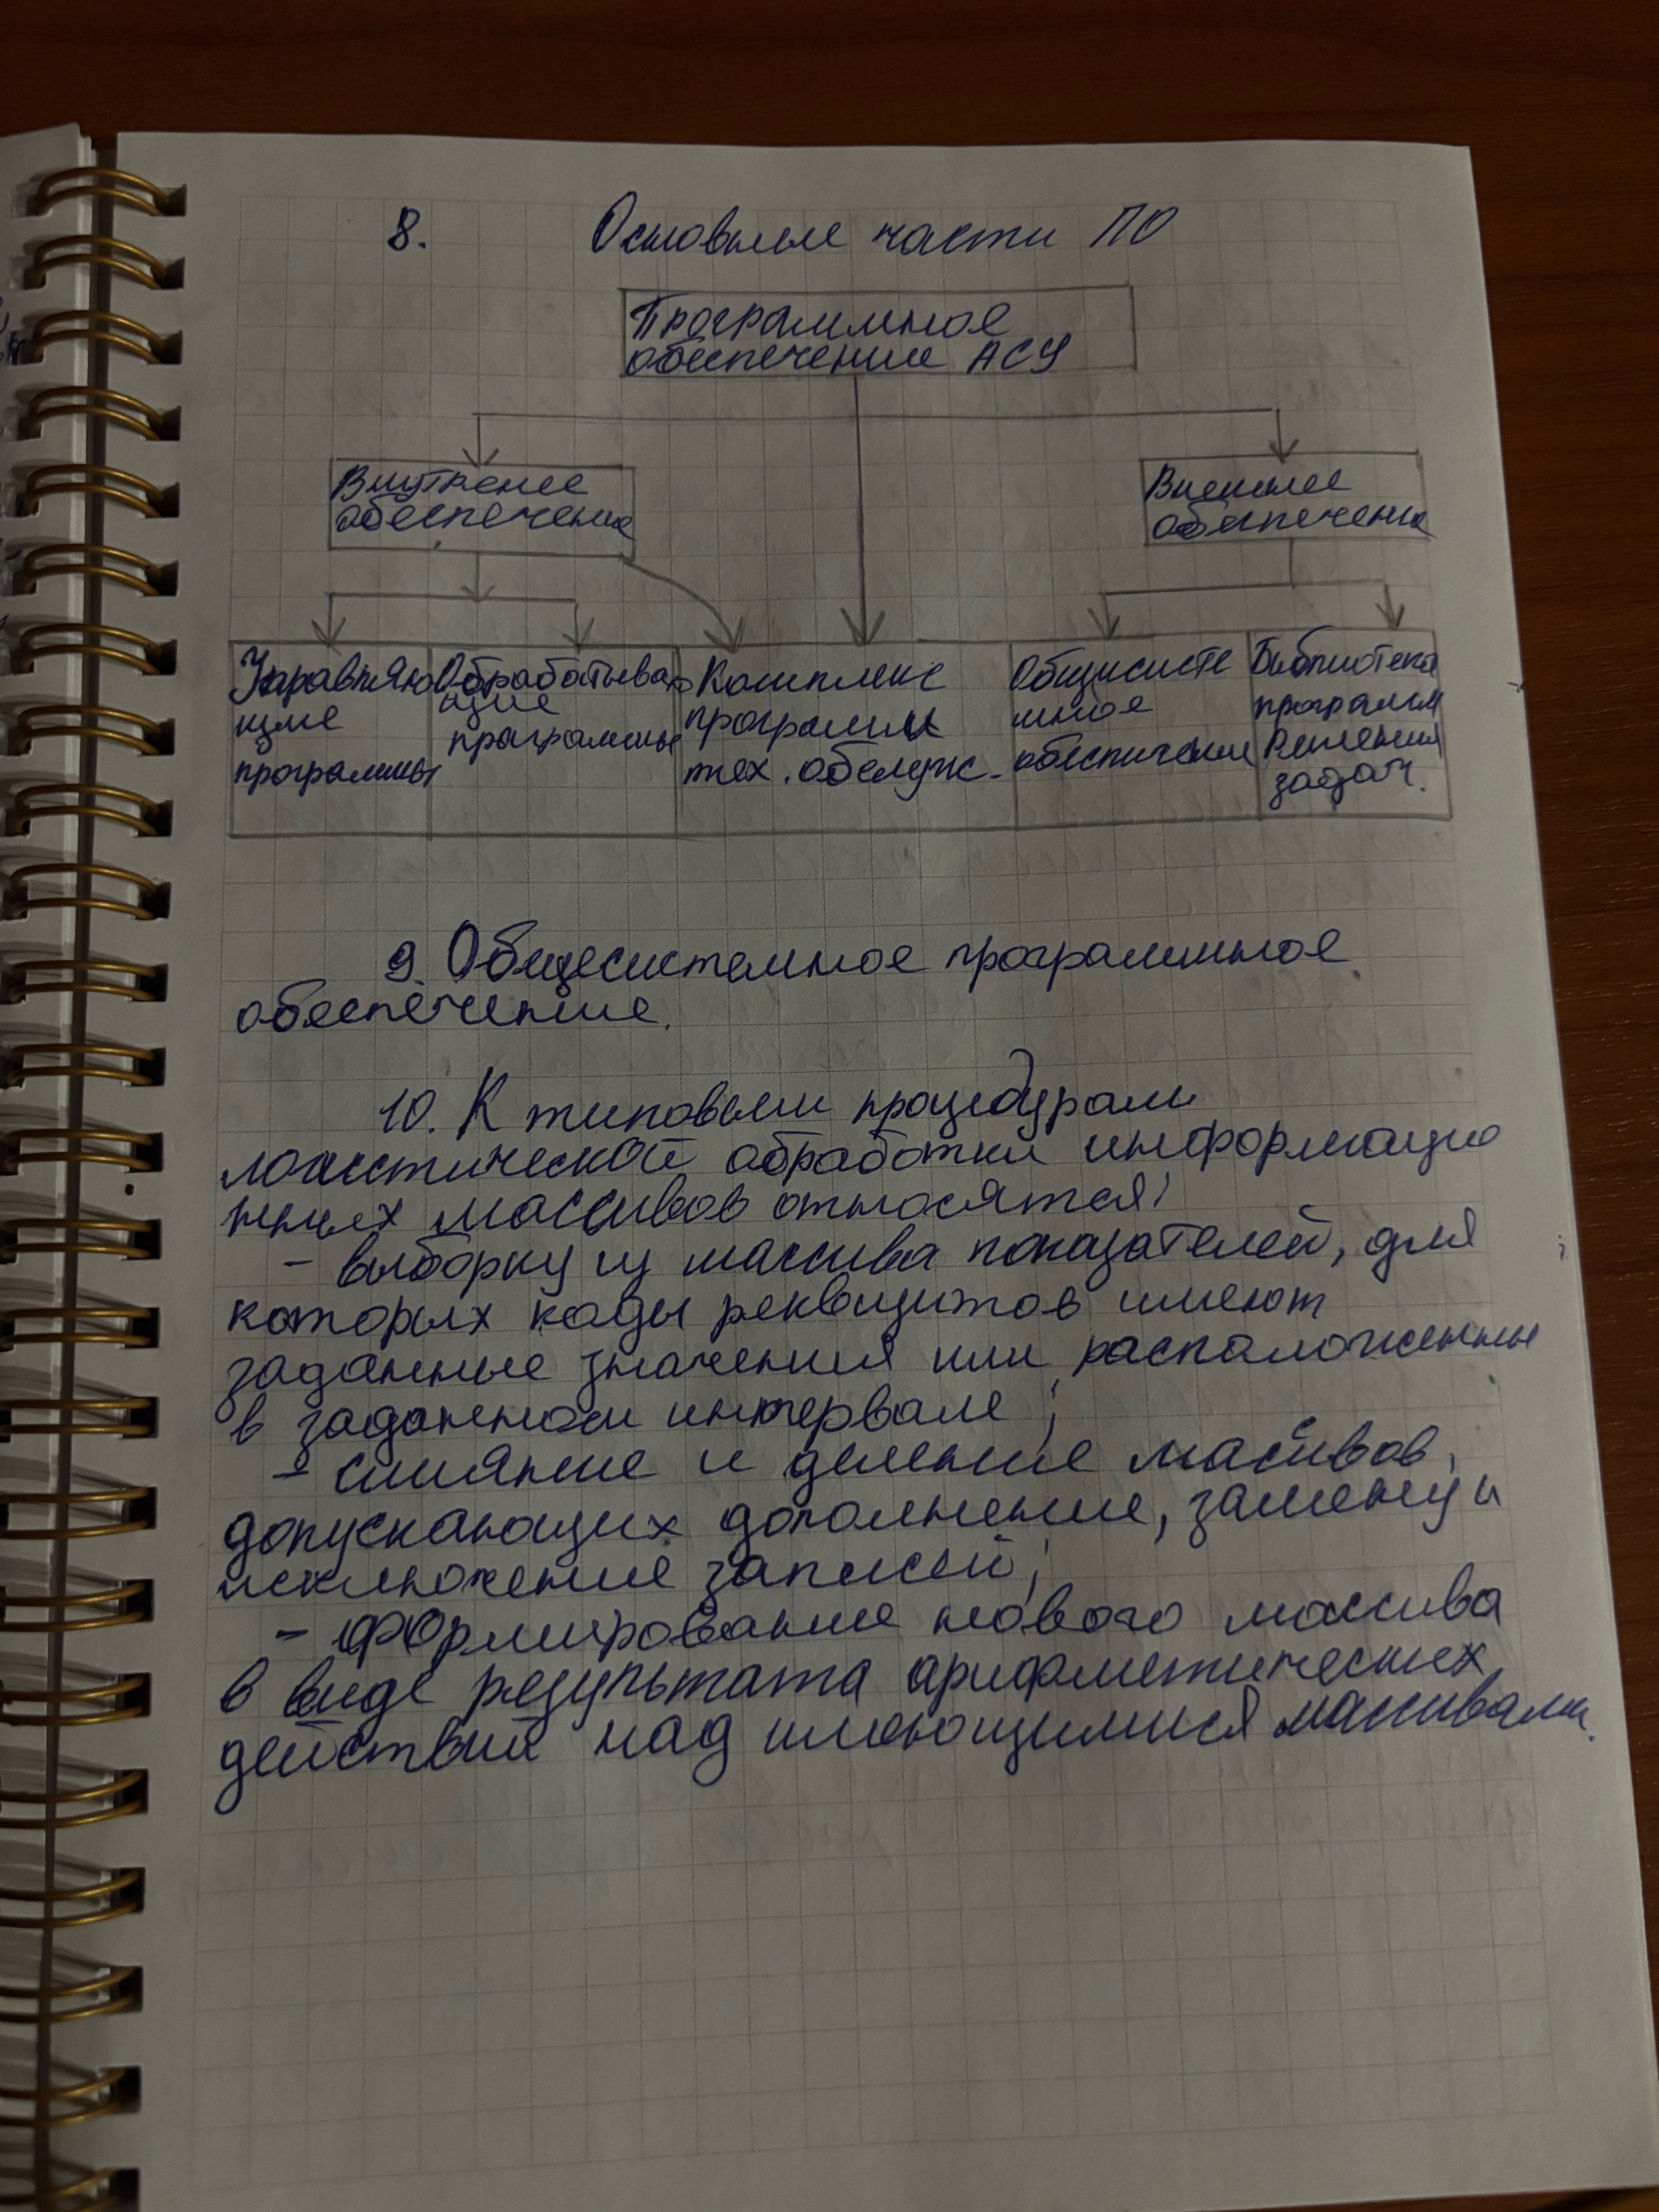 8. Основные части ПО
Программное
обеспечение АСУ
Внутренее
обеспечение
Внешнее
обеспечение
Управляю
щие
программы
Обрабатываю
щие
программы
Комплекс
программ
тех. обслуж.
Общисисте
мное
обеспичение
Библиотека
программ
Решения
задач.
9. Общесистемное программное
обеспечение.
10. К типовым процедурам
логистической обработки информацио
нных массивов относятся:
- выборку из массива показателей, для
которых коды реквизитов имеют
заданные значения или распаложенны
в заданном интервале;
- слияние и деление масивов,
допускающих дополнение, замену и
исключение записей;
- формирование нового массива
в виде результата арифметических
действий над имеющимися массивами.